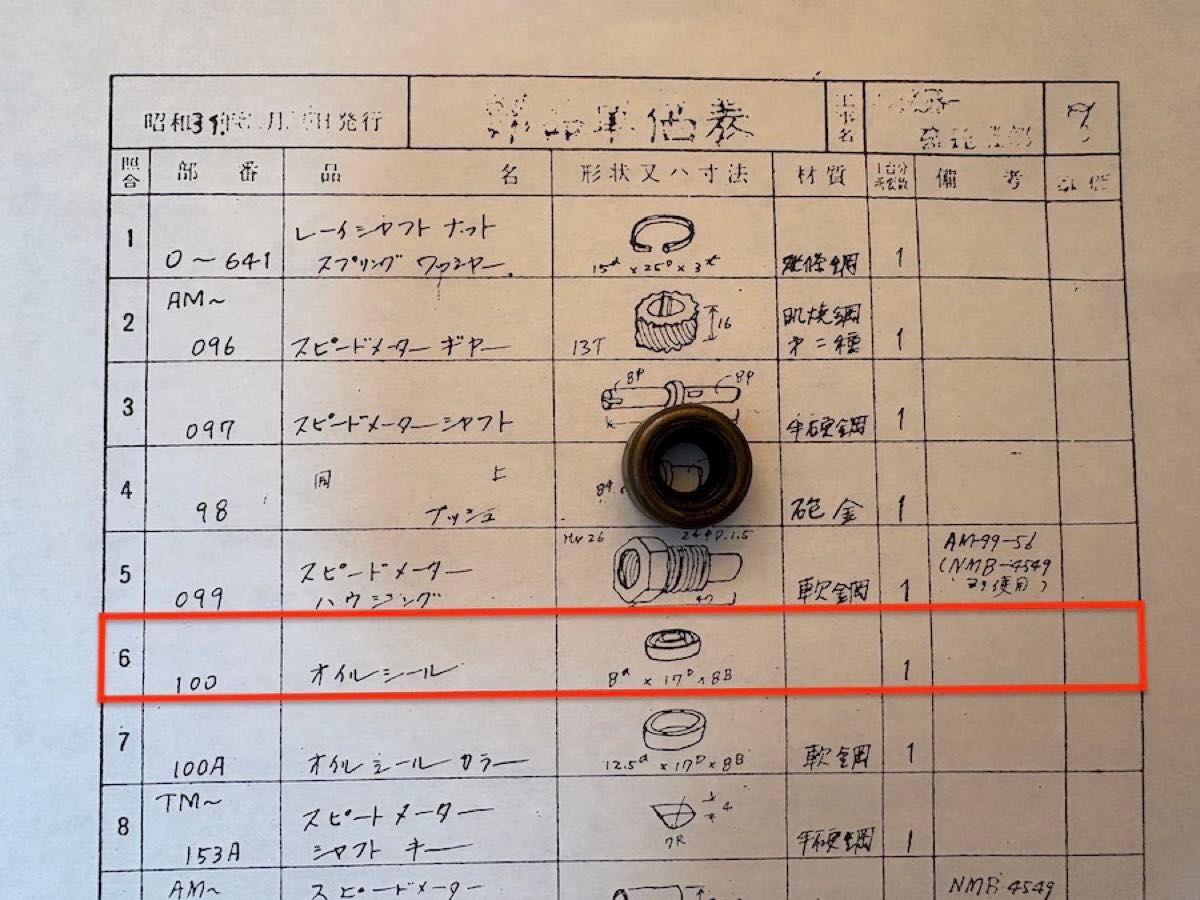 昭和3 年 月 日発行
単価表
工事名
照合
部 番
品 名
形状又ハ寸法
材質
1台分
所要数
備 考
1
0～641
レーイシャフト ナット
スプリング ワッシャー
15ᵈ×25ᴰ×3ᵗ
1
2
AM～
096
スピードメーター ギヤー
13T
16
肌焼鋼
第二種
1
3
097
スピードメーター シャフト
8φ
8φ
半硬鋼
1
4
98
同 上
ブッシュ
砲金
1
5
099
スピードメーター
ハウジング
軟鋼
1
AM-99-56
(NMB-4549
ヨリ使用)
6
100
オイルシール
8ᵈ×17ᴰ×8B
1
7
100A
オイルシール カラー
12.5ᵈ×17ᴰ×8B
軟鋼
1
8
TM～
153A
スピードメーター
シャフト キー
4
7R
半硬鋼
1
AM～
スピードメーター
NMB-4549